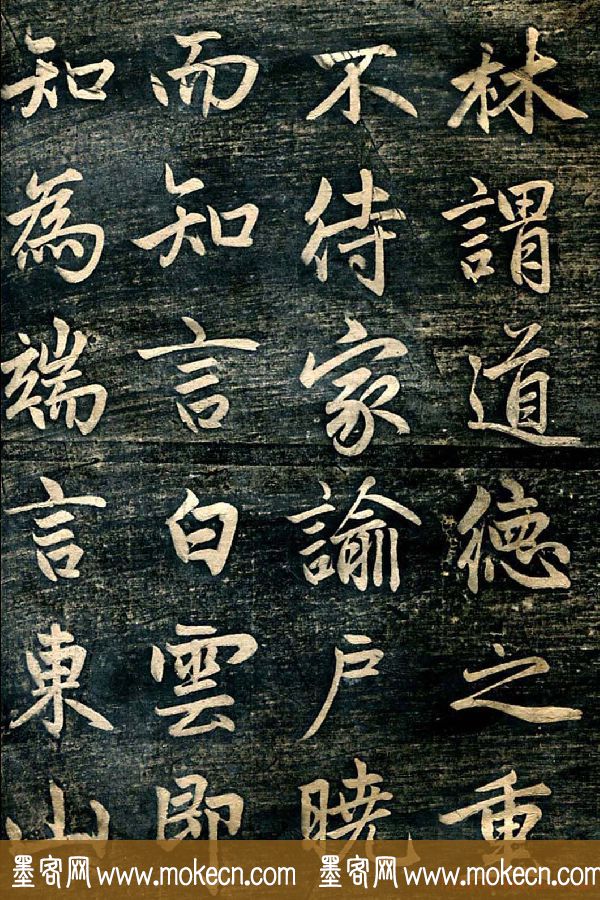 林謂道德之重
不待家諭户曉
而知言白雲即
知為端言東山
墨客网 www.mokecn.com 墨客网 www.mokecn.com